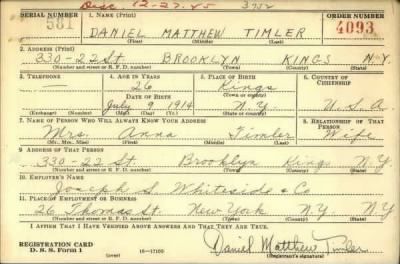 Disc 12-27-45 3752
SERIAL NUMBER 1. NAME (Print) ORDER NUMBER
581 DANIEL MATTHEW TIMLER 4093
(First) (Middle) (Last)
2. ADDRESS (Print)
330-22 St. BROOKLYN KINGS N.Y.
(Number and street or R. F. D. number) (Town) (County) (State)
3. TELEPHONE 4. AGE IN YEARS 5. PLACE OF BIRTH 6. COUNTRY OF CITIZENSHIP
— 26 Kings
DATE OF BIRTH (Town or county)
July 9 1914 N.Y. U.S.A.
(Exchange) (Number) (Mo.) (Day) (Yr.) (State or country)
7. NAME OF PERSON WHO WILL ALWAYS KNOW YOUR ADDRESS 8. RELATIONSHIP OF THAT PERSON
Mrs. Anna Timler Wife
(Mr., Mrs., Miss) (First) (Middle) (Last)
9. ADDRESS OF THAT PERSON
330-22 St. Brooklyn Kings N.Y
(Number and street or R. F. D. number) (Town) (County) (State)
10. EMPLOYER'S NAME
Joseph S. Whiteside & Co
11. PLACE OF EMPLOYMENT OR BUSINESS
26 Thomas St. New York N.Y N.Y
(Number and street or R. F. D. number) (Town) (County) (State)
I AFFIRM THAT I HAVE VERIFIED ABOVE ANSWERS AND THAT THEY ARE TRUE.
REGISTRATION CARD
D. S. S. Form 1 16-17105 Daniel Matthew Timler
(over) (Registrant's signature)